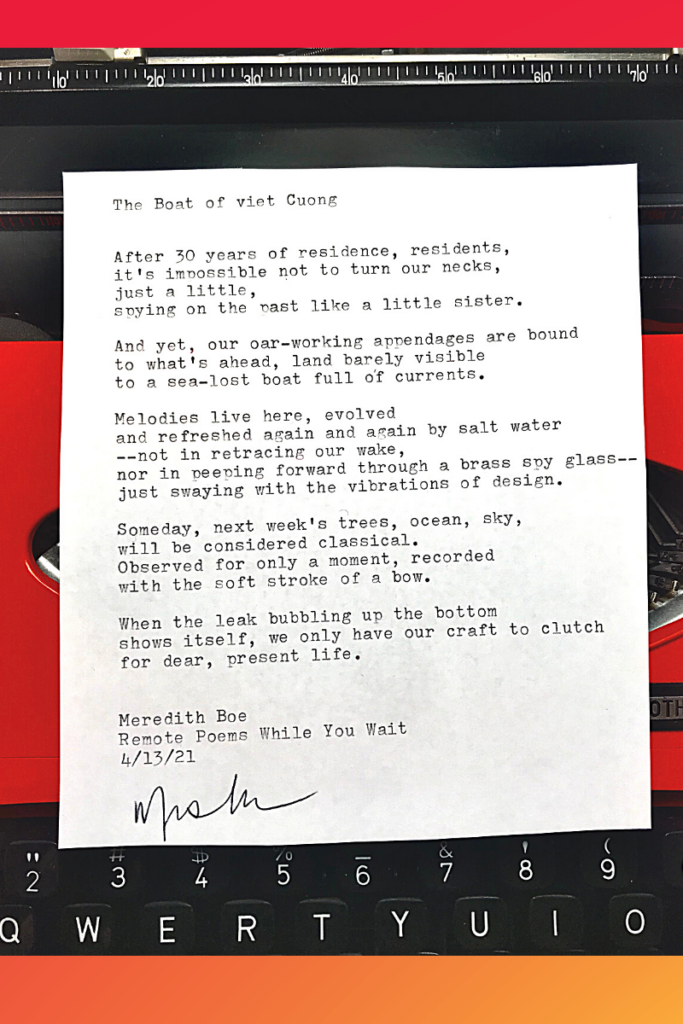 10 20 30 40 50 60 70
The Boat of viet Cuong
After 30 years of residence, residents,
it's impossible not to turn our necks,
just a little,
spying on the past like a little sister.
And yet, our oar-working appendages are bound
to what's ahead, land barely visible
to a sea-lost boat full of currents.
Melodies live here, evolved
and refreshed again and again by salt water
--not in retracing our wake,
nor in peeping forward through a brass spy glass--
just swaying with the vibrations of design.
Someday, next week's trees, ocean, sky,
will be considered classical.
Observed for only a moment, recorded
with the soft stroke of a bow.
When the leak bubbling up the bottom
shows itself, we only have our craft to clutch
for dear, present life.
Meredith Boe
Remote Poems While You Wait
4/13/21
OTH
" # $ % _ & ' (
2 3 4 5 6 7 8 9
Q W E R T Y U I O